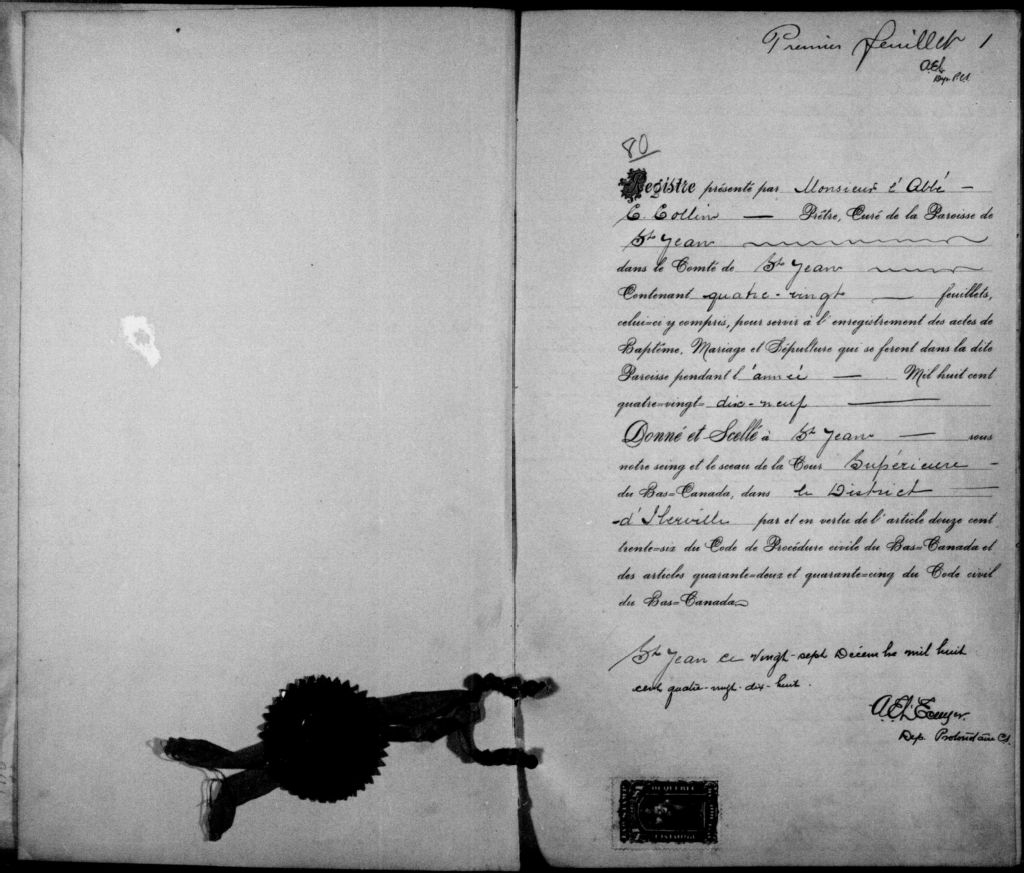 Premier feuillet 1
80
Registre présenté par Monsieur l'Abbé –
C. Collin — Prêtre, Curé de la Paroisse de
St Jean
dans le Comté de St Jean
Contenant quatre-vingt — feuillets,
celui=ci y compris, pour servir à l'enregistrement des actes de
Baptême, Mariage et Sépulture qui se feront dans la dite
Paroisse pendant l'année — Mil huit cent
quatre=vingt= dix-neuf —
Donné et Scellé à St Jean — sous
notre seing et le sceau de la Cour Supérieure –
du Bas=Canada, dans le District —
d'Iberville par et en vertu de l'article douze cent
trente=six du Code de Procédure civile du Bas=Canada et
des articles quarante=deux et quarante=cinq du Code civil
du Bas=Canada
St Jean ce vingt-sept Décembre mil huit
cent quatre-vingt-dix-huit.
Dep.
DE QUEBEC
LAW STAMP